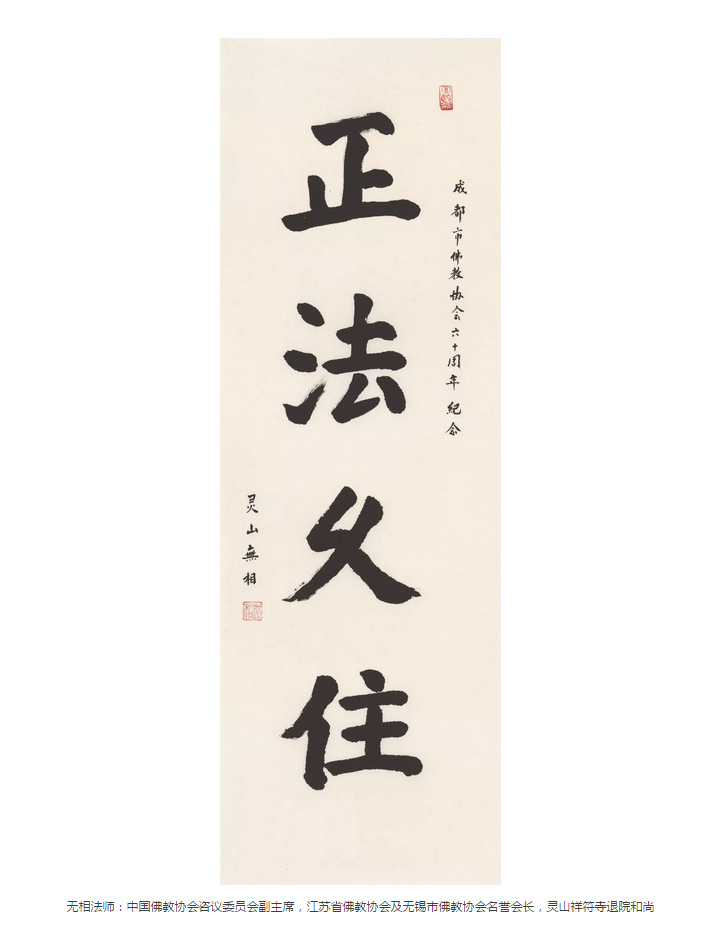 成都市佛教协会六十周年纪念
正法久住
灵山無相
无相法师：中国佛教协会咨议委员会副主席，江苏省佛教协会及无锡市佛教协会名誉会长，灵山祥符寺退院和尚